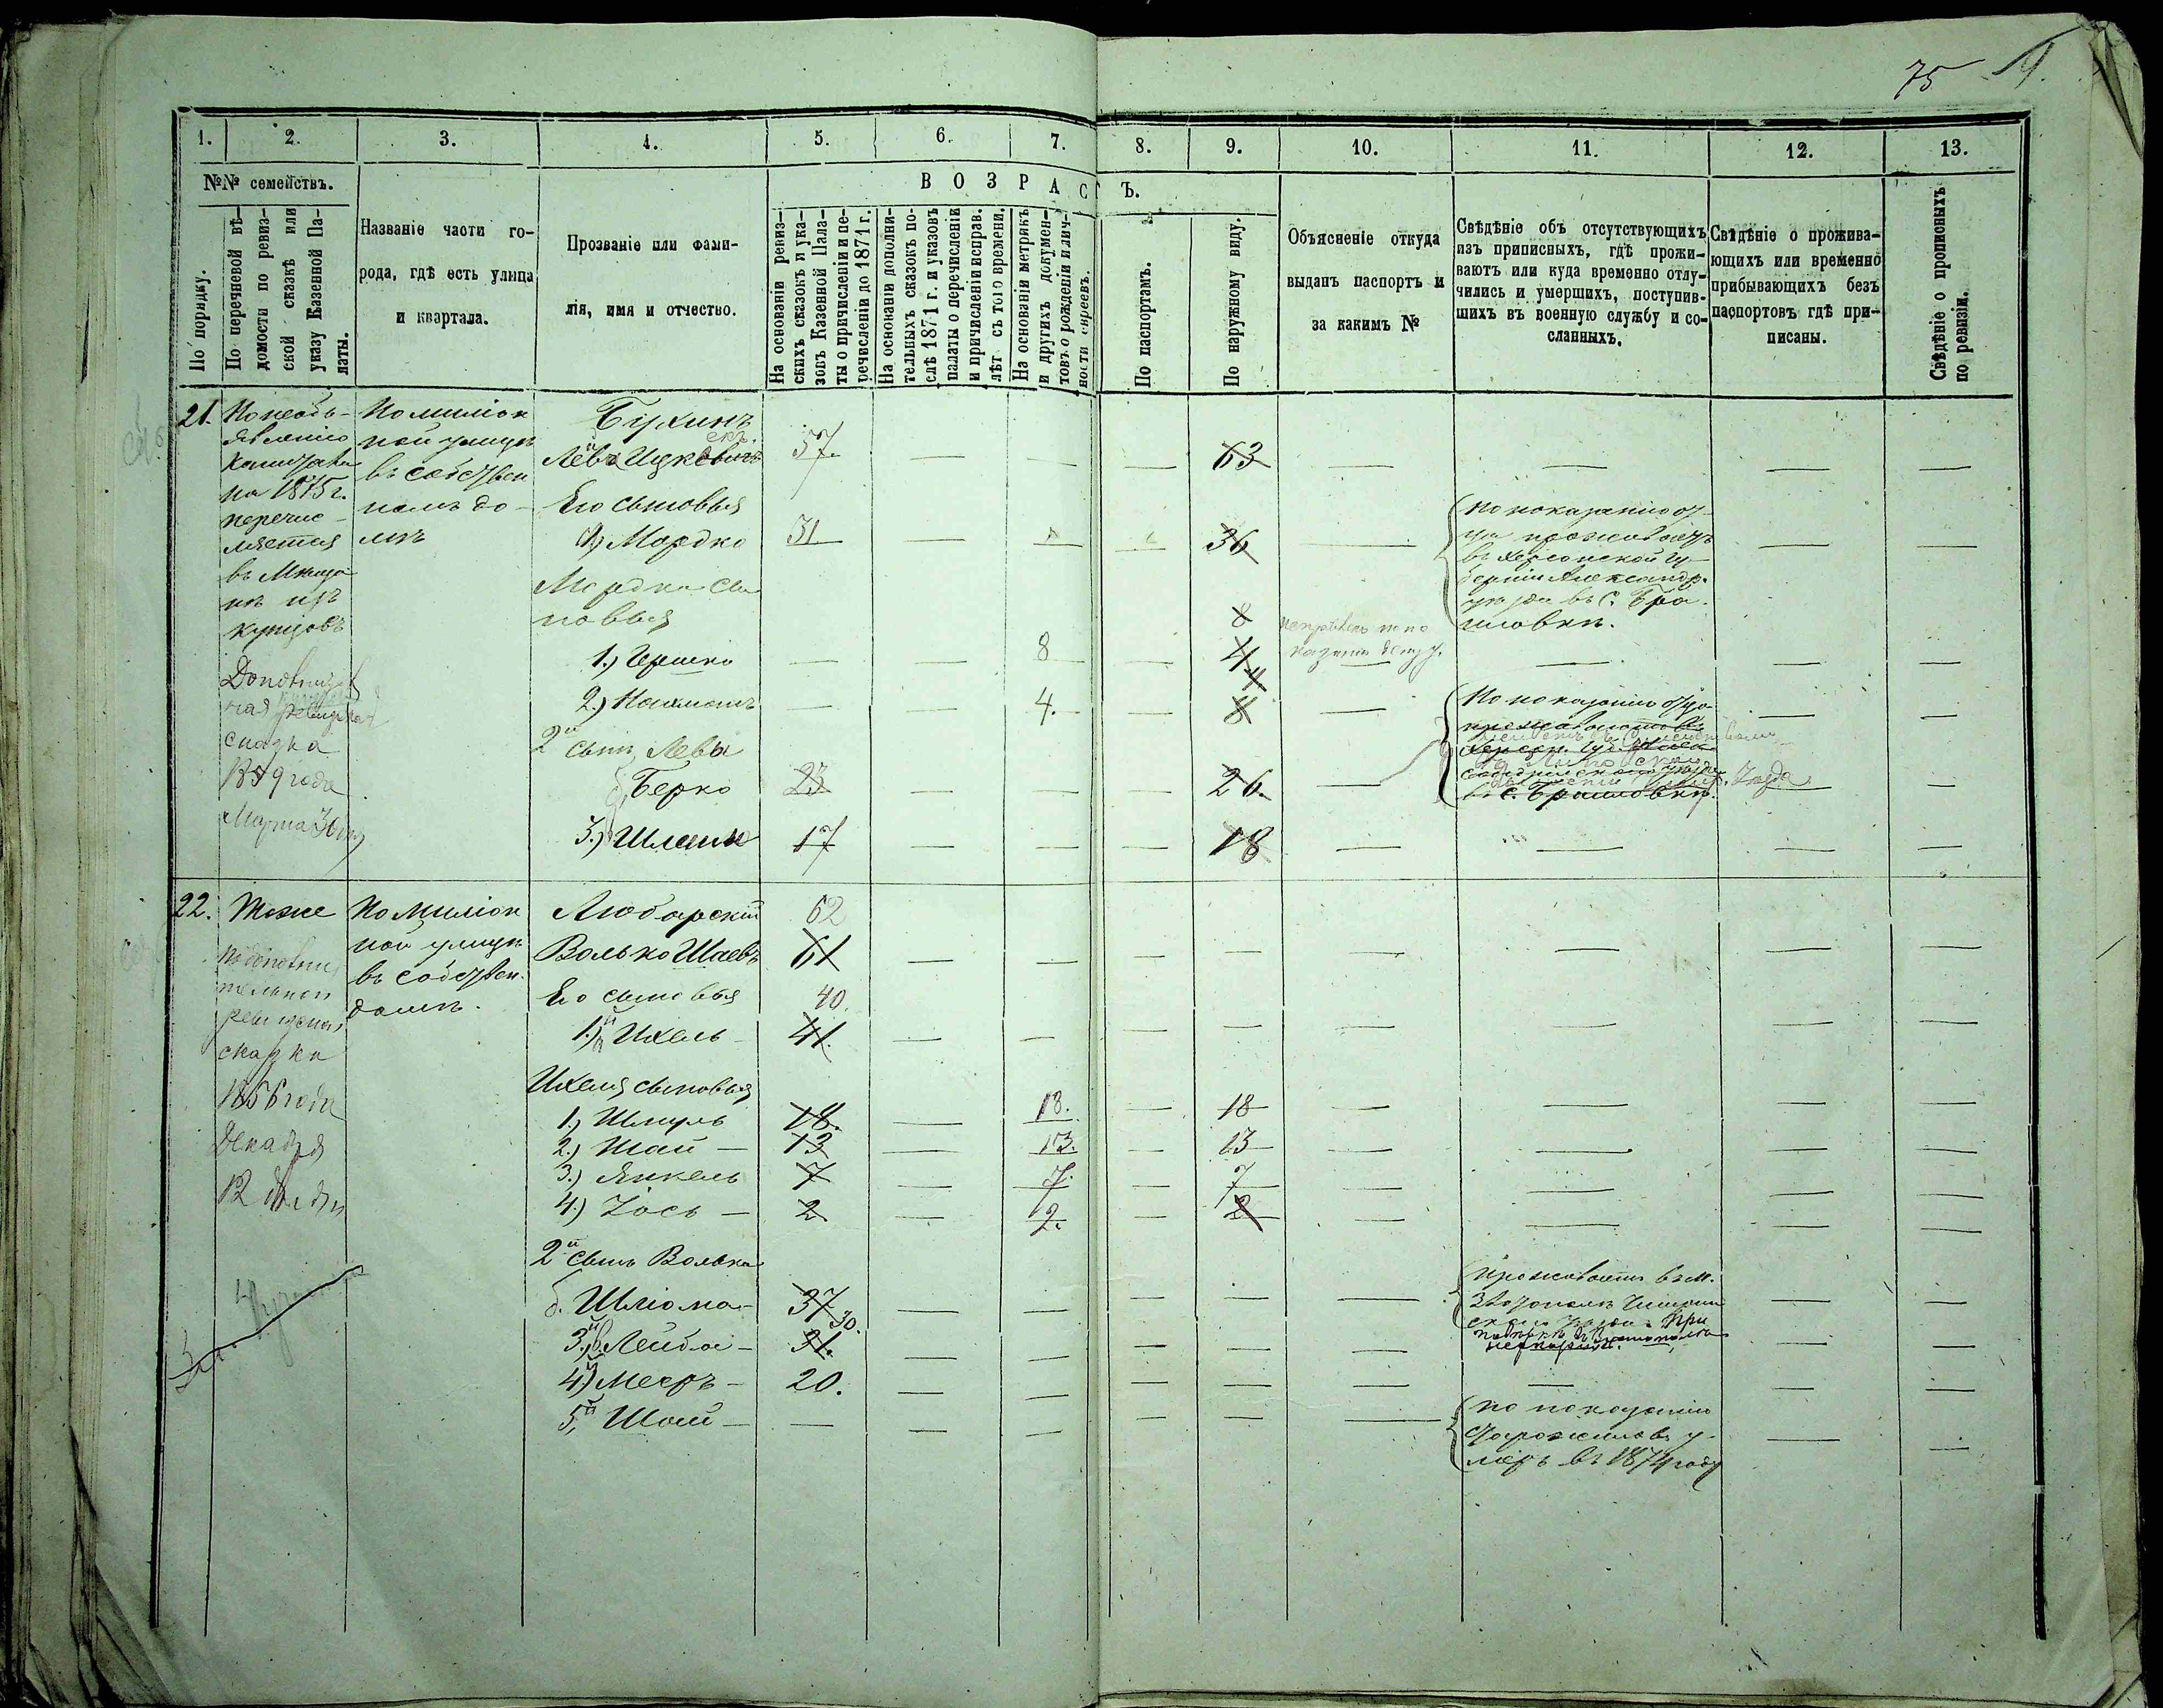 75
1.
2.
3.
4.
5.
6.
7.
8.
9.
10.
11.
12.
13.
№№ семействъ.
По порядку.
По перечневой вѣ-
домости по ревиз-
ской сказкѣ или
указу Казенной Па-
латы.
Названіе части го-
рода, гдѣ есть улица
и квартала.
Прозваніе или фами-
лія, имя и отчество.
ВОЗРАСТЪ.
На основаніи ревиз-
скихъ сказокъ и ука-
зовъ Казенной Пала-
ты о причисленіи и пе-
речисленіи до 1871 г.
На основаніи дополни-
тельныхъ сказокъ по-
слѣ 1871 г. и указовъ
палаты о перечисленіи
и причисленіи исправ.
лѣт съ того времени.
На основаніи метрикъ
и другихъ докумен-
товъ о рожденіи и лич-
ности евреевъ.
По паспортамъ.
По наружному виду.
Объясненіе откуда
выданъ паспортъ и
за какимъ №
Свѣдѣніе объ отсутствующихъ
изъ приписныхъ, гдѣ прожи-
ваютъ или куда временно отлу-
чились и умершихъ, поступив-
шихъ въ военную службу и со-
сланныхъ.
Свѣдѣніе о прожива-
ющихъ или временно
прибывающихъ безъ
паспортовъ гдѣ при-
писаны.
Свѣдѣніе о прописныхъ
по ревизіи.
21.
По необъ-
явленію
капитала
на 1875 г.
перечис-
ляется
въ Мѣща
нѣ изъ
купцовъ
сказка
1859 года
Марта
По Миліон
ной улицѣ
въ собствен
номъ до-
мѣ
Бухинъ
Лёва Ицковичъ 57. 63
Его сыновья
Мордко 31 36
По показанію от-
ца проживаетъ
въ Херсонской Гу-
берніи Александр.
уѣзда въ С. Бра-
иловкѣ.
Мордка сы
новья
1.) Гершко 8
8
4
2.) Нахманъ 4.
4
8
2й сынъ Левы
Берко 23 26.
По показанію отца
проживаетъ въ
Херсон. Губ. Алек-
сандрійскаго уѣзда
въ С. Браиловкѣ.
3.) Шлеим 17 18
22. Тоже
сказки
1856 года
Декабря
12 дня
По Миліон
ной улицѣ
въ собствен.
домѣ.
Любарскій 62
Волько Шаевъ 61
Его сыновья 40.
1.) Ихель 41.
Ихеля сыновья
1.) Шмуль 18. 18. 18
2.) Шай 13 13. 13
3.) Янкель 7 7. 7
4.) Іось 2 2. 2
2й сынъ Волька
Шліома 37
проживаетъ въ м.
3. Лейба 30. 31.
4. Мееръ 20.
5. Шай
по показанію
старожиловъ у-
меръ въ 1874 году